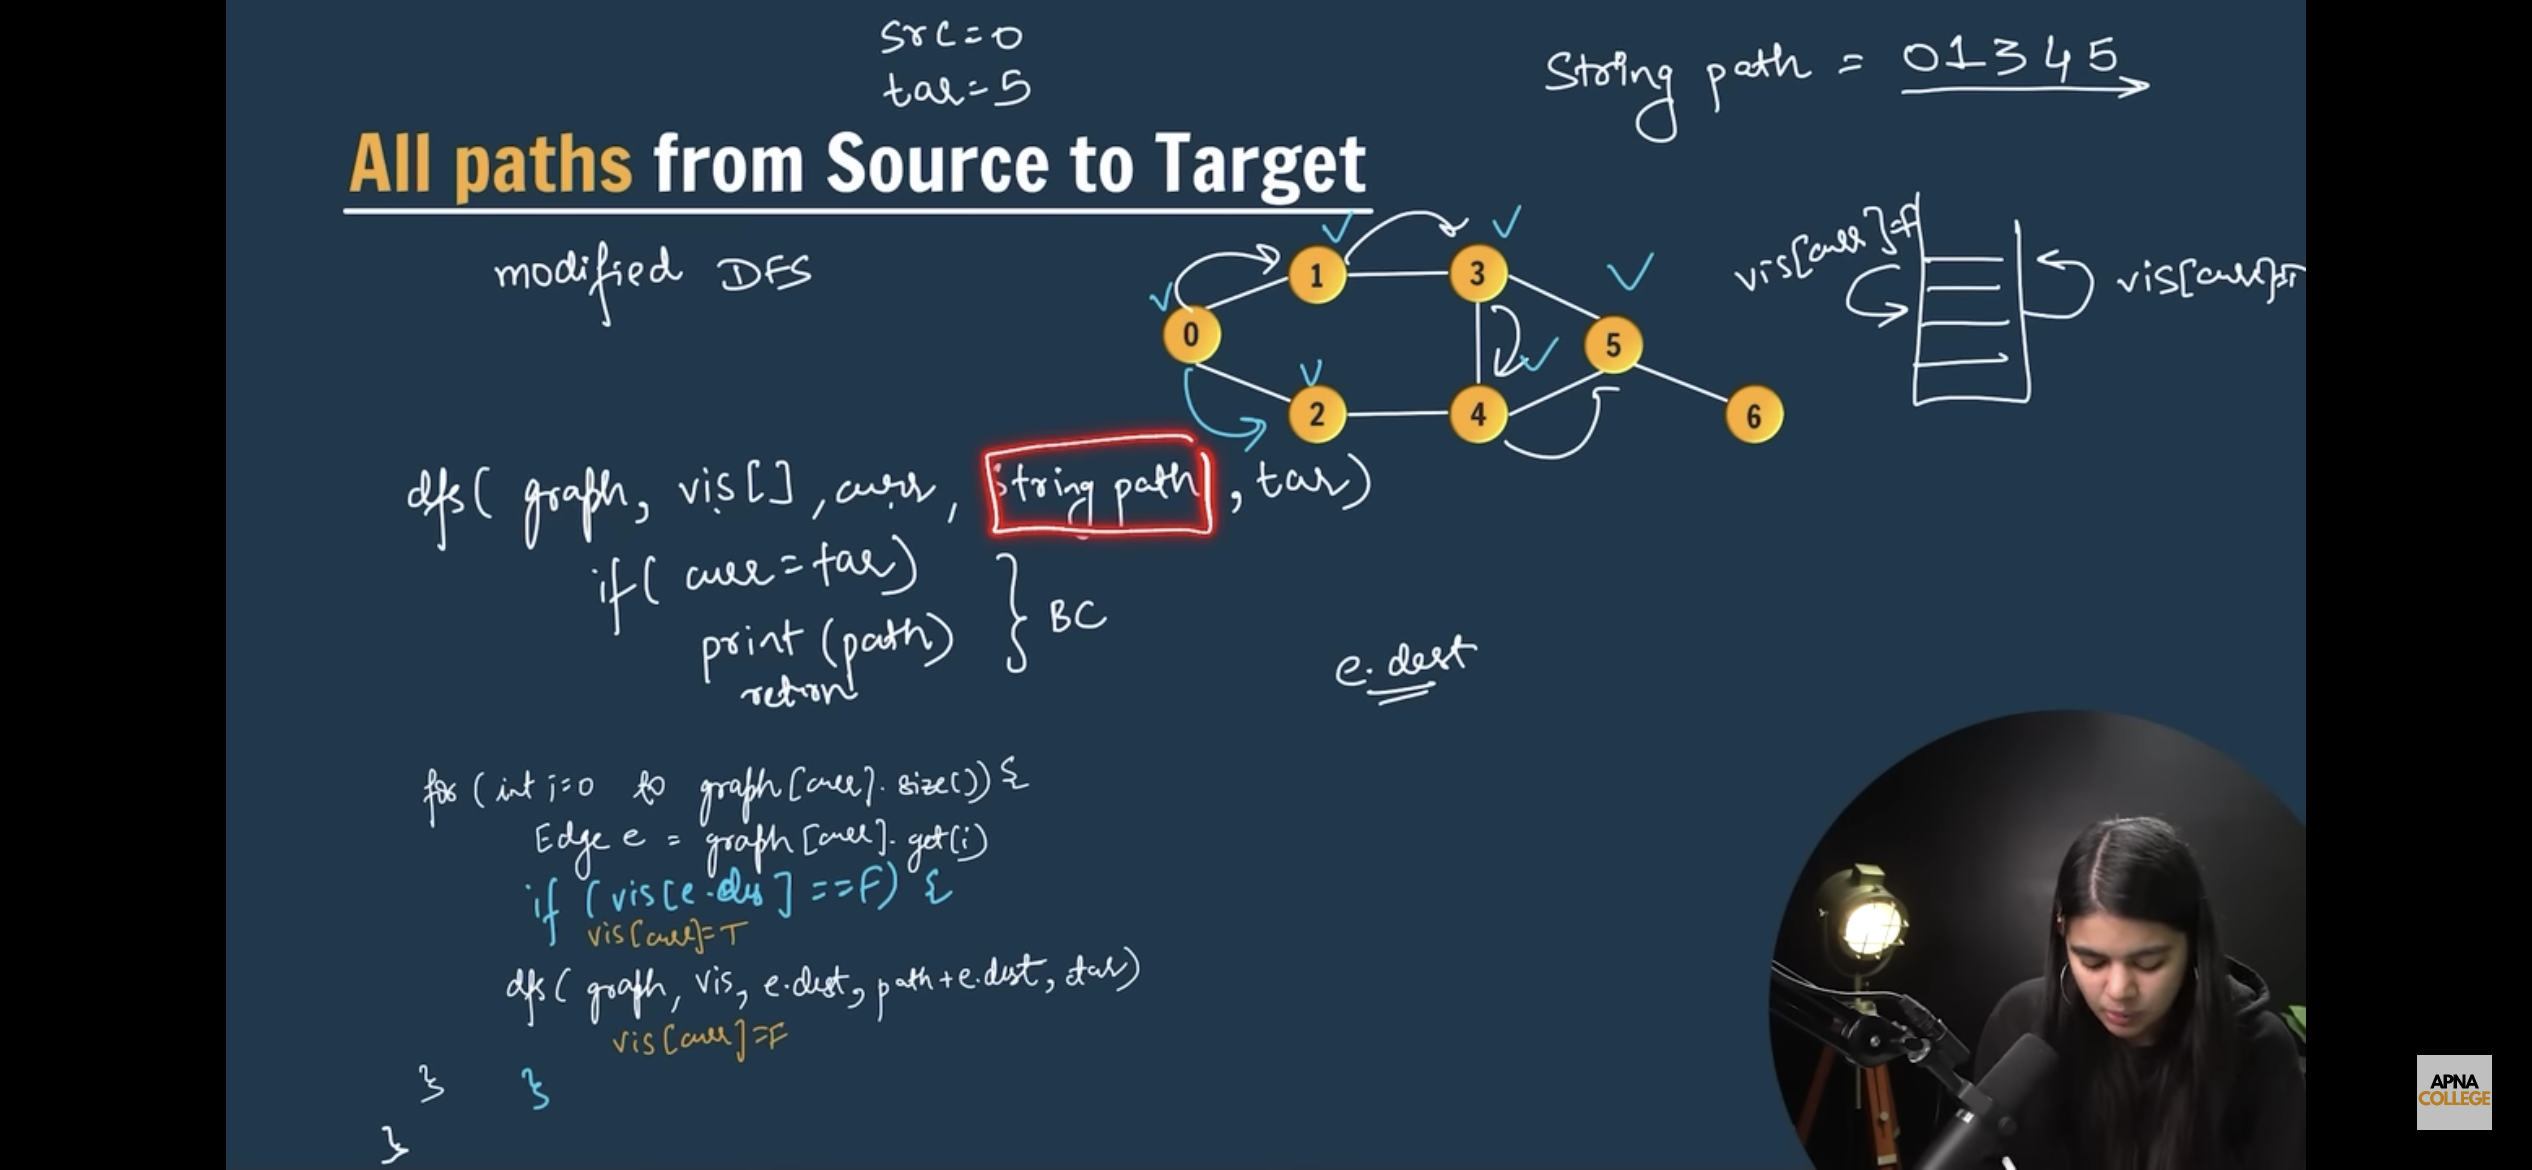 src=0
tar=5
String path = 01345
All paths from Source to Target
modified DFS
vis[curr]=F
vis[curr]=T
0
1
3
5
2
4
6
dfs( graph, vis[], curr, String path, tar)
if( curr=tar)
print (path)
return
} BC
e.dest
for (int i=0 to graph[curr].size()) {
Edge e = graph[curr].get(i)
if (vis[e.des] ==F) {
vis[curr]=T
dfs( graph, vis, e.dest, path+e.dest, tar)
vis[curr]=F
} }
}
APNA
COLLEGE